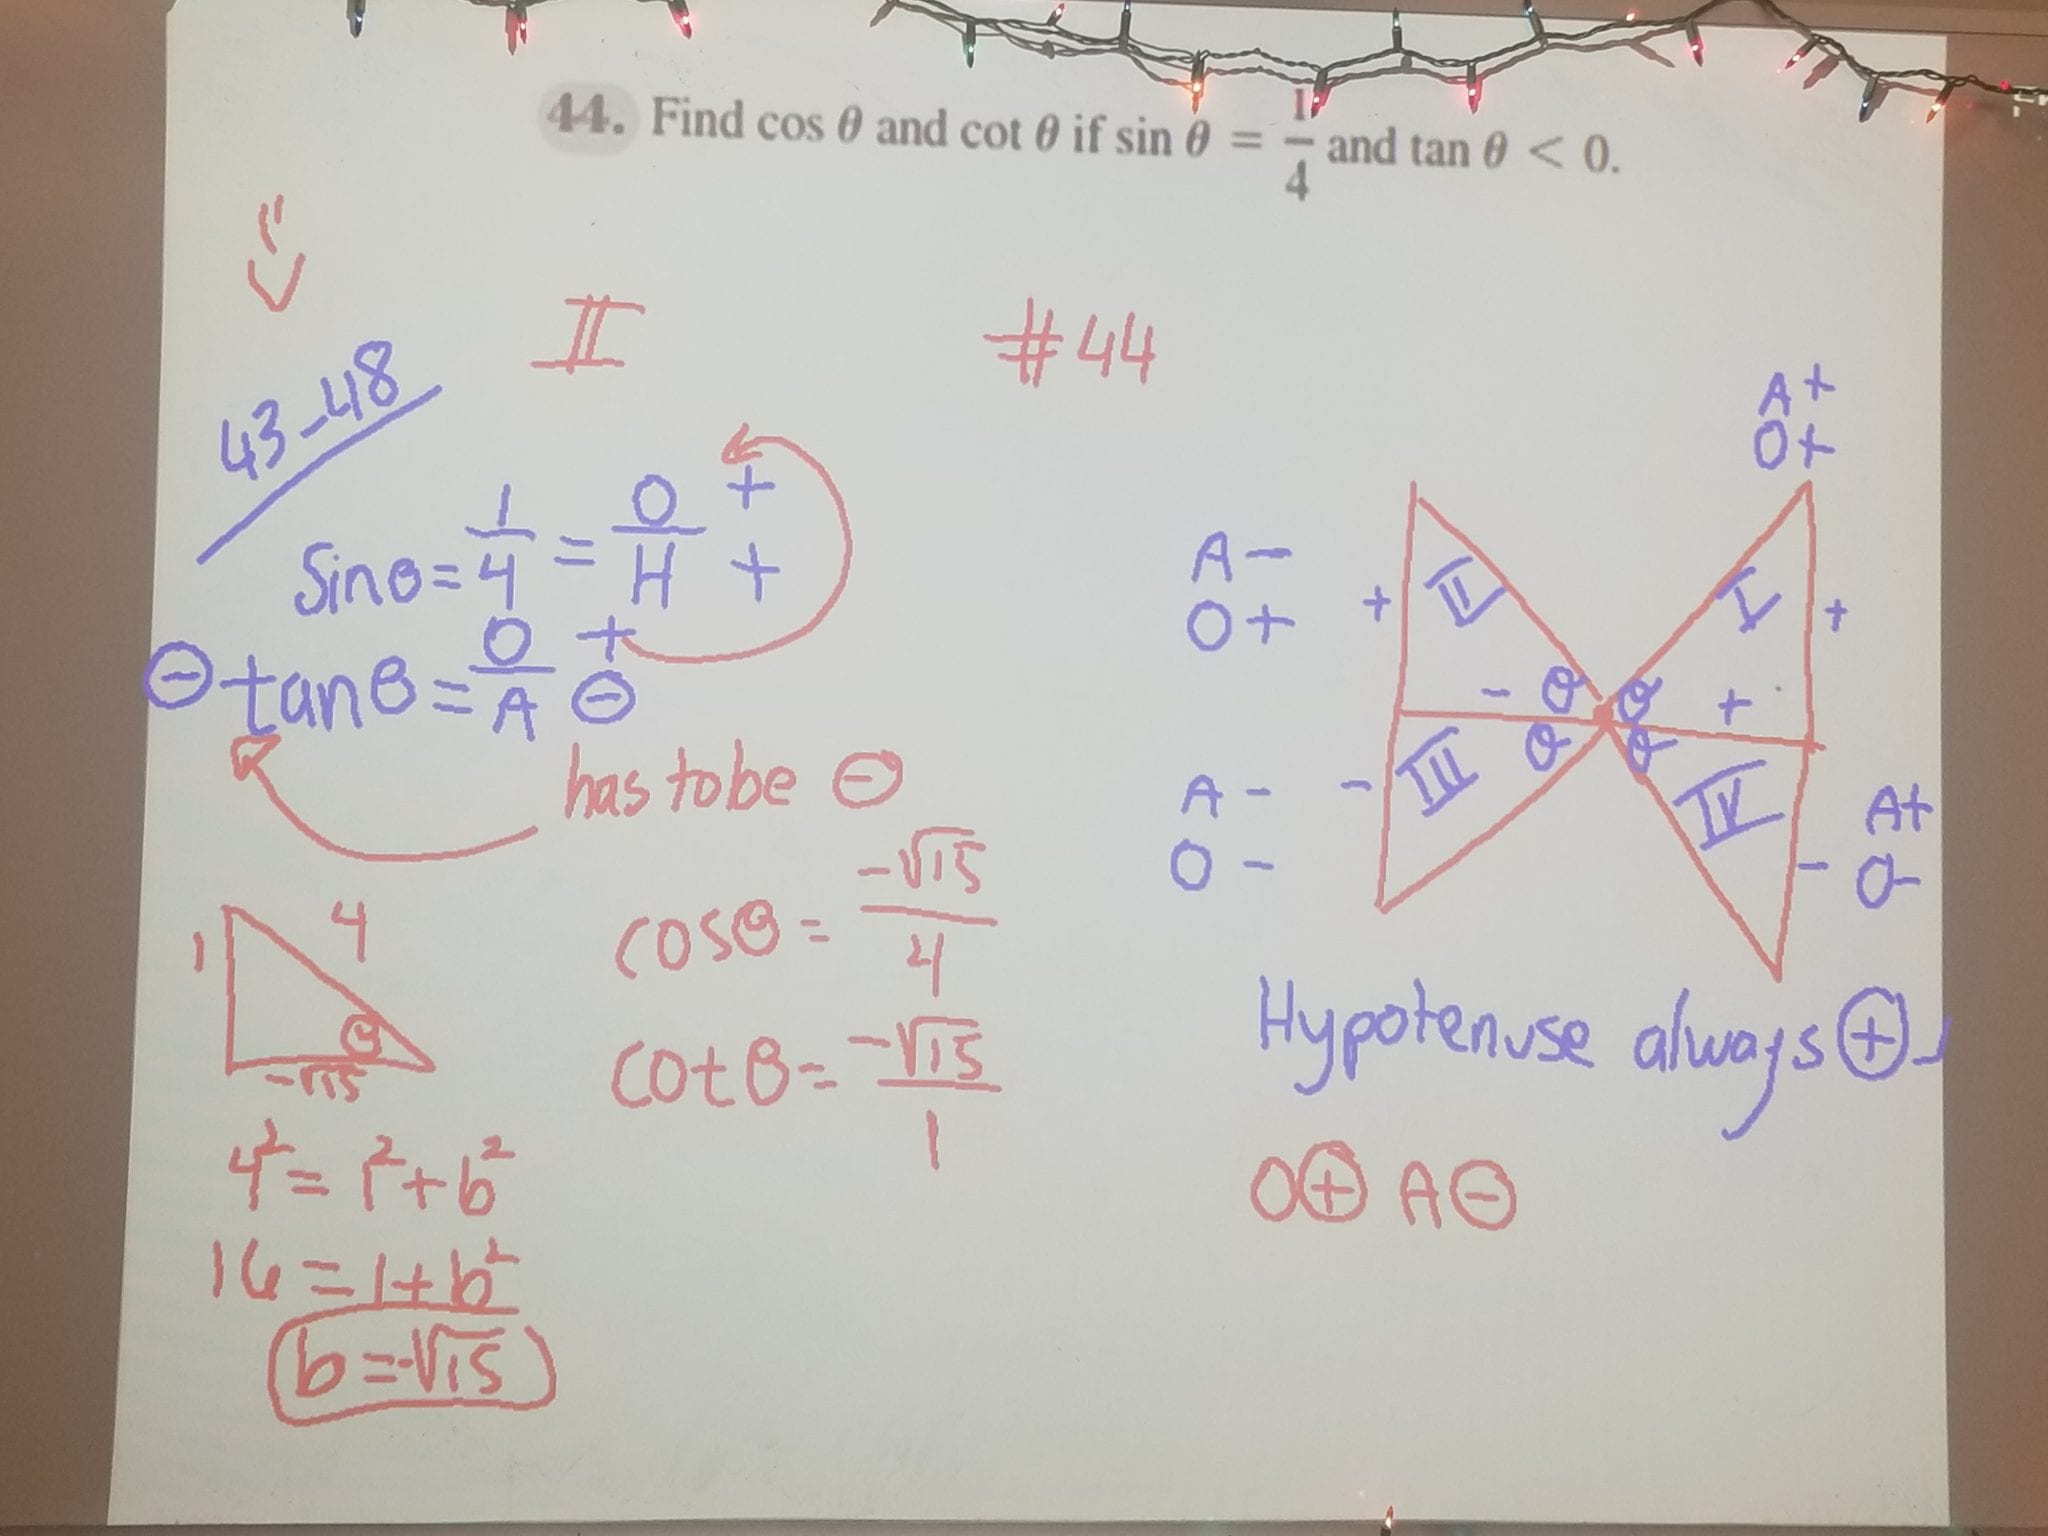 44. Find cos θ and cot θ if sin θ = 1/4 and tan θ < 0.
II
#44
43-48
sinθ = 1/4 = O/H + +
⊖ tanθ = O/A + ⊖
has to be ⊖
1
4
θ
-√15
4² = 1² + b²
16 = 1 + b²
b = -√15
cosθ = -√15/4
cotθ = -√15/1
A+
O+
A-
O+
+
II
I
+
- θ
θ +
θ
θ
A-
O-
-
III
IV
-
A+
O-
Hypotenuse always ⊕
O⊕ A⊖